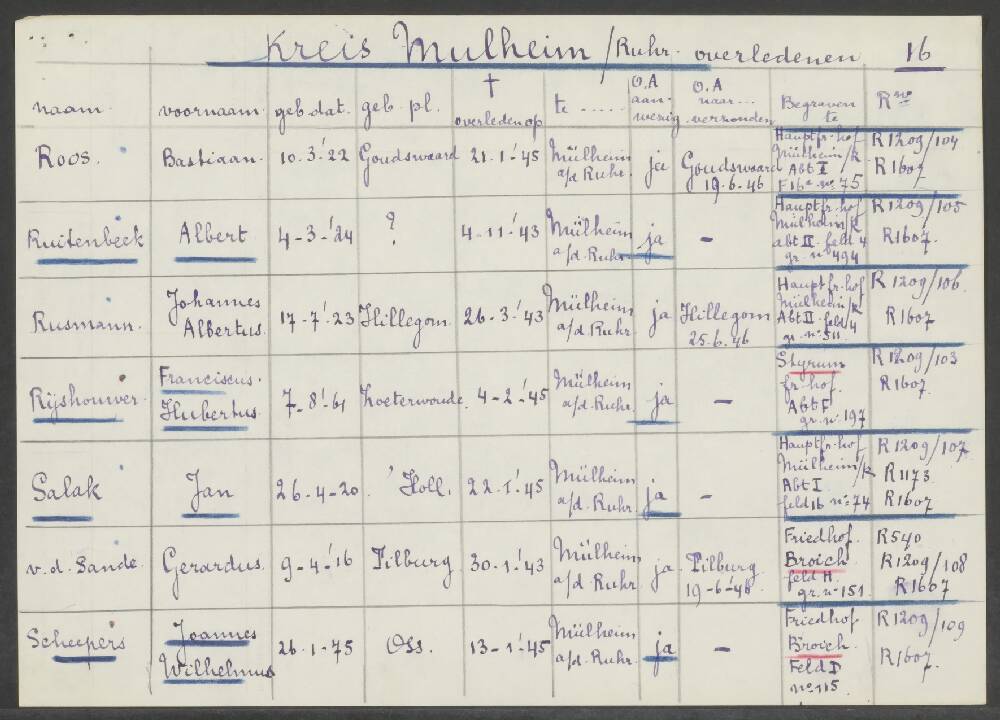 Kreis Mulheim/Ruhr. overledenen 16
naam. voornaam. geb. dat. geb. pl. † overleden op te ..... O.A aanwezig O.A naar... verzonden Begraven te R no
Roos. Bastiaan. 10.3.'22 Goudswaard 21.1.'45 Mülheim a/d. Ruhr. ja Goudswaard 19.6.46 Hauptfr.hof Mülheim/R Abt I F16a no. 75 R1209/104 R1607
Ruitenbeek Albert 4-3-'24 ? 4-11-'43 Mülheim a/d. Ruhr. ja - Hauptfr.hof Mülheim/R abt II feld 4 gr. no 494 R1209/105 R1607.
Rusmann. Johannes Albertus. 17-7-'23 Hillegom. 26-3-'43 Mülheim a/d. Ruhr. ja Hillegom 25.6.46 Hauptfr.hof Mülheim/R Abt II feld 4 gr. no. 511 R1209/106. R1607
Rijshouwer. Franciscus. Hubertus. 7-8-'61 Zoeterwoude. 4-2-'45 Mülheim a/d. Ruhr. ja - Styrum fr.hof. Abt F gr. no 197 R1209/103 R1607.
Salak Jan 26-4-20. Holl. 22.1.'45 Mülheim a/d. Ruhr. ja - Hauptfr.hof Mülheim/R Abt I feld 16 no. 74 R1209/107 R1173 R1607
v.d. Sande. Gerardus. 9-4-'16 Tilburg 30-1-'43 Mülheim a/d. Ruhr. ja Tilburg 19-6-46 Friedhof. Broich feld H. gr. no 151. R540 R1209/108 R1607
Scheepers Joannes Wilhelmus 26.1-75 Oss. 13-1-'45 Mülheim a/d. Ruhr. ja - Friedhof Broich. Feld D no. 115 R1209/109 R1607.